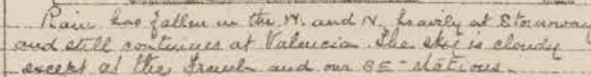 Rain has fallen in the W. and N. heavily at Stornoway
and still continues at Valencia. The sky is cloudy
except at the French and our SE-stations.